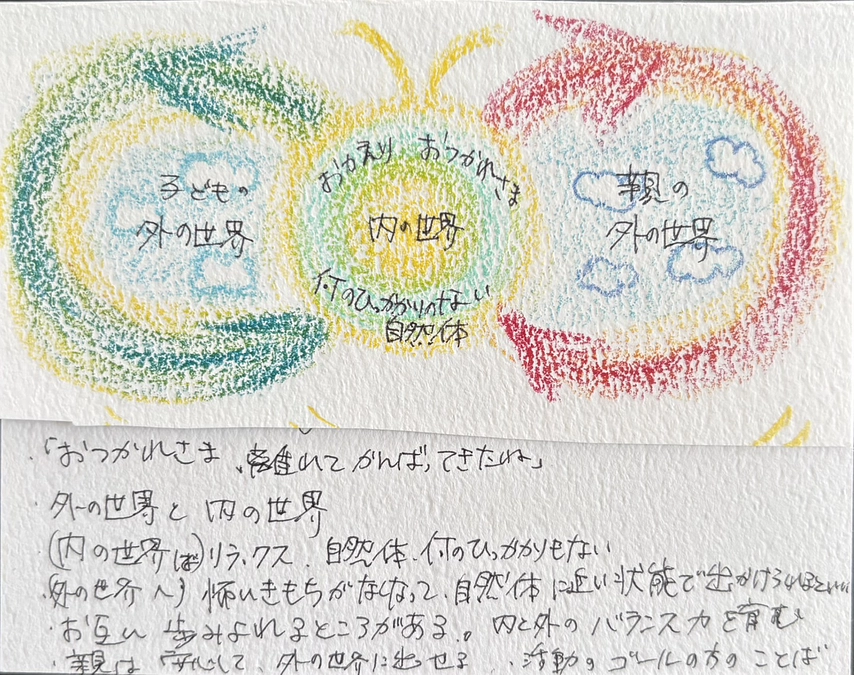 おかえり おつかれさま
子どもの
外の世界
内の世界
親の
外の世界
何のひっかかりのない
自然体
・「おつかれさま、離れてがんばってきたね」
・外の世界と内の世界
(内の世界は)リラックス、自然体、何のひっかかりもない
(外の世界へ)怖いきもちがなくなって、自然体に近い状態で出かけられるといい
・お互い歩みよれるところがある。内と外のバランス力を育む
・親は安心して、外の世界に出せる ・活動のゴールの方のことば